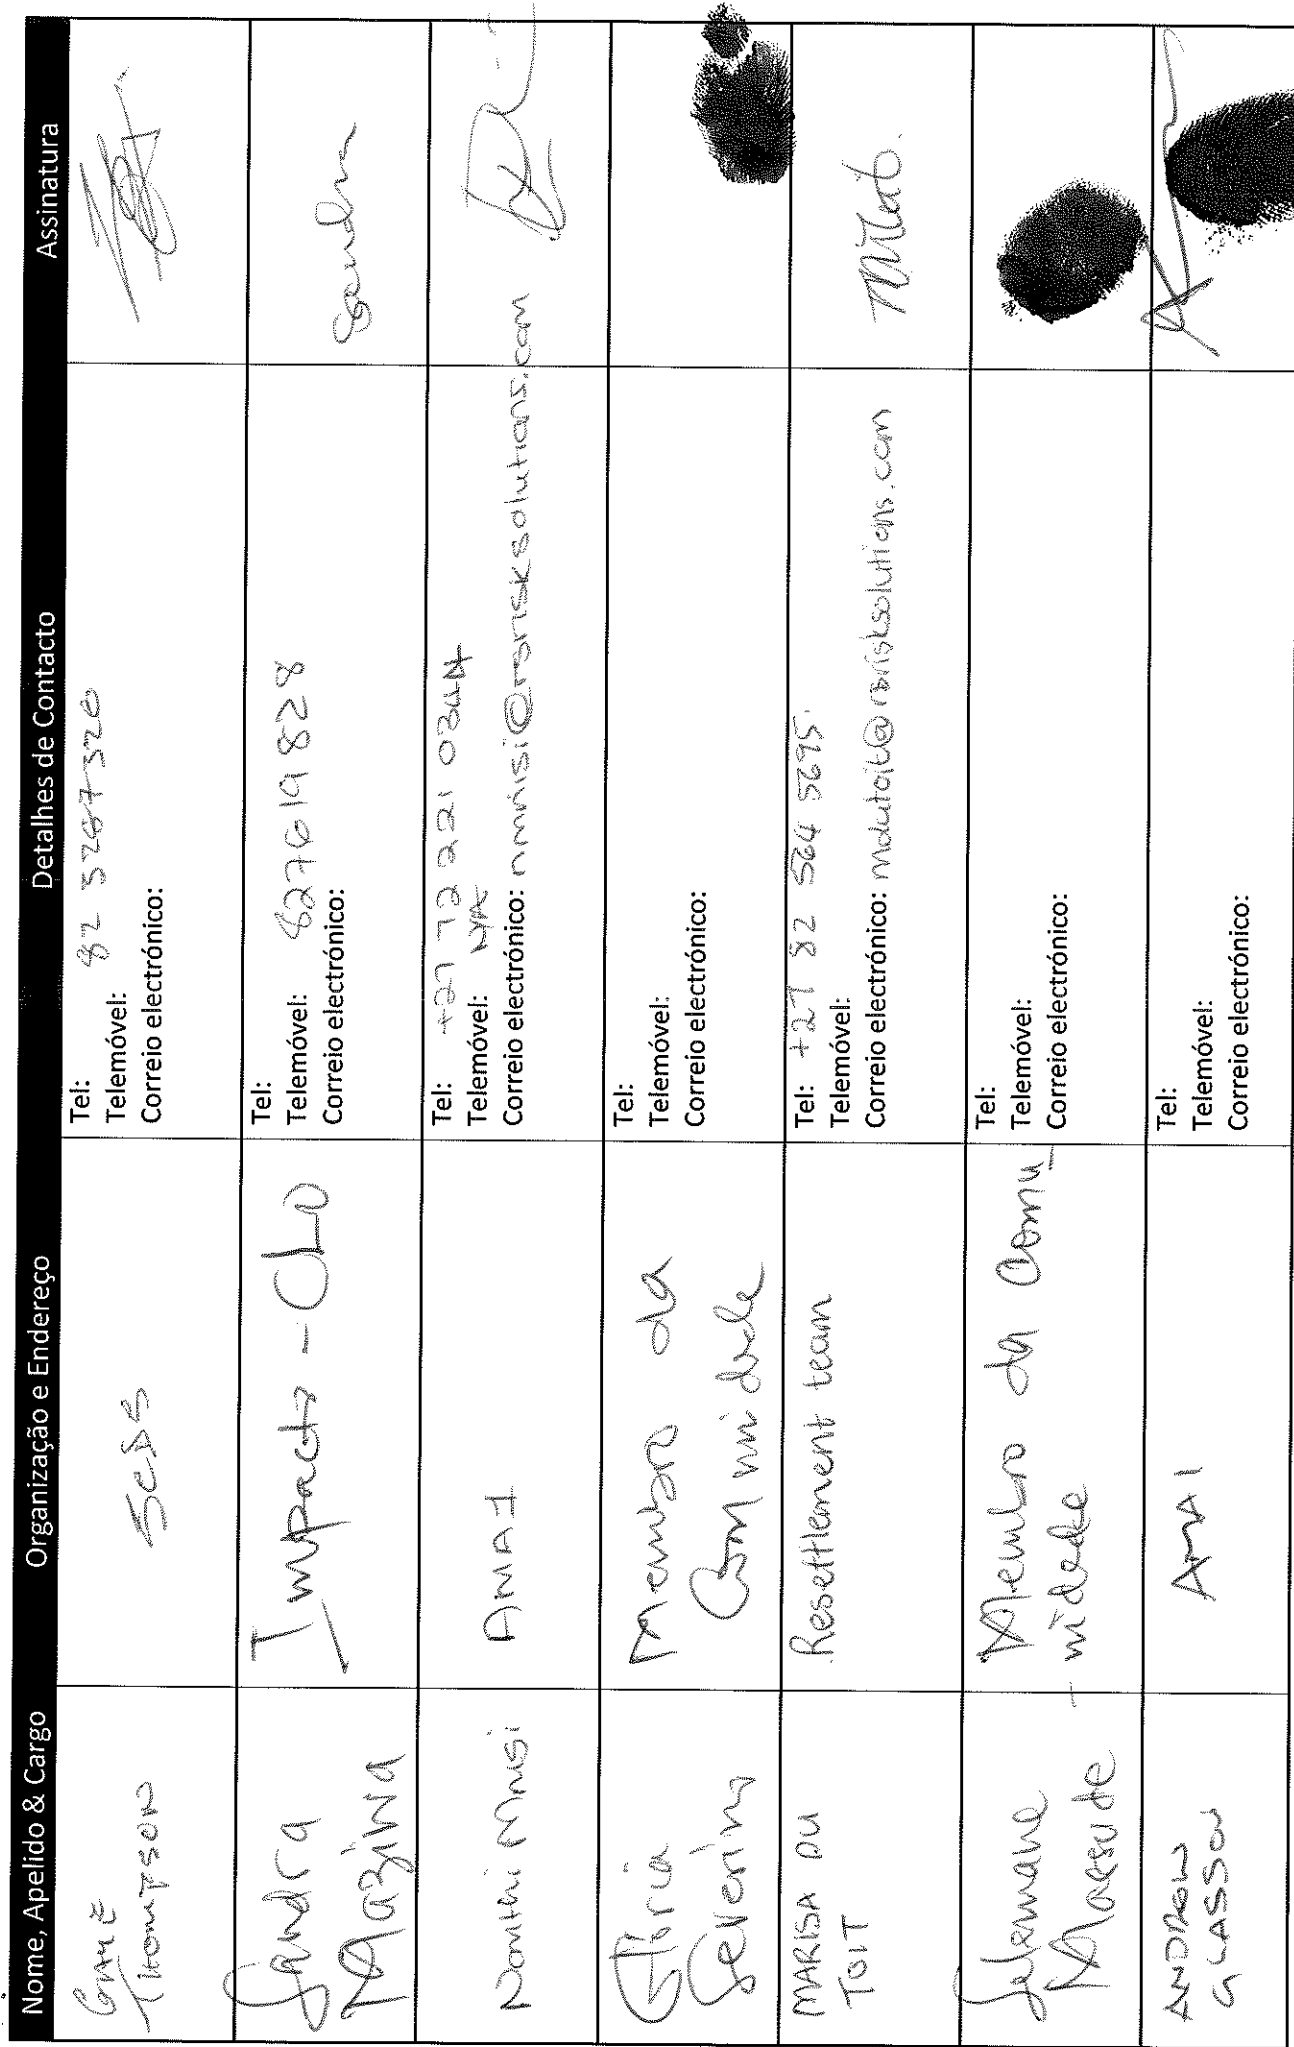 Nome, Apelido & Cargo Organização e Endereço Detalhes de Contacto Assinatura
Thompson
SCDS
Tel:
Telemóvel:
Correio electrónico:
Sandra
Mazive
Impacto - CLO
Tel:
Telemóvel: 827619828
Correio electrónico:
Sandra
Nomthi Mnisi
AMA1
Tel: +27 72 221 0344
Telemóvel: N/A
Correio electrónico: nmnisi@rbrisksolutions.com
Glória
Severino
Membro da
Comunidade
Tel:
Telemóvel:
Correio electrónico:
MARISA DU
TOIT
Resettlement team
Tel: +27 82 564 5695
Telemóvel:
Correio electrónico: mdutoit@rbrisksolutions.com
Selemane
Membro da Comu
-nidade
Tel:
Telemóvel:
Correio electrónico:
ANDREW
GLASSON
AMA1
Tel:
Telemóvel:
Correio electrónico: